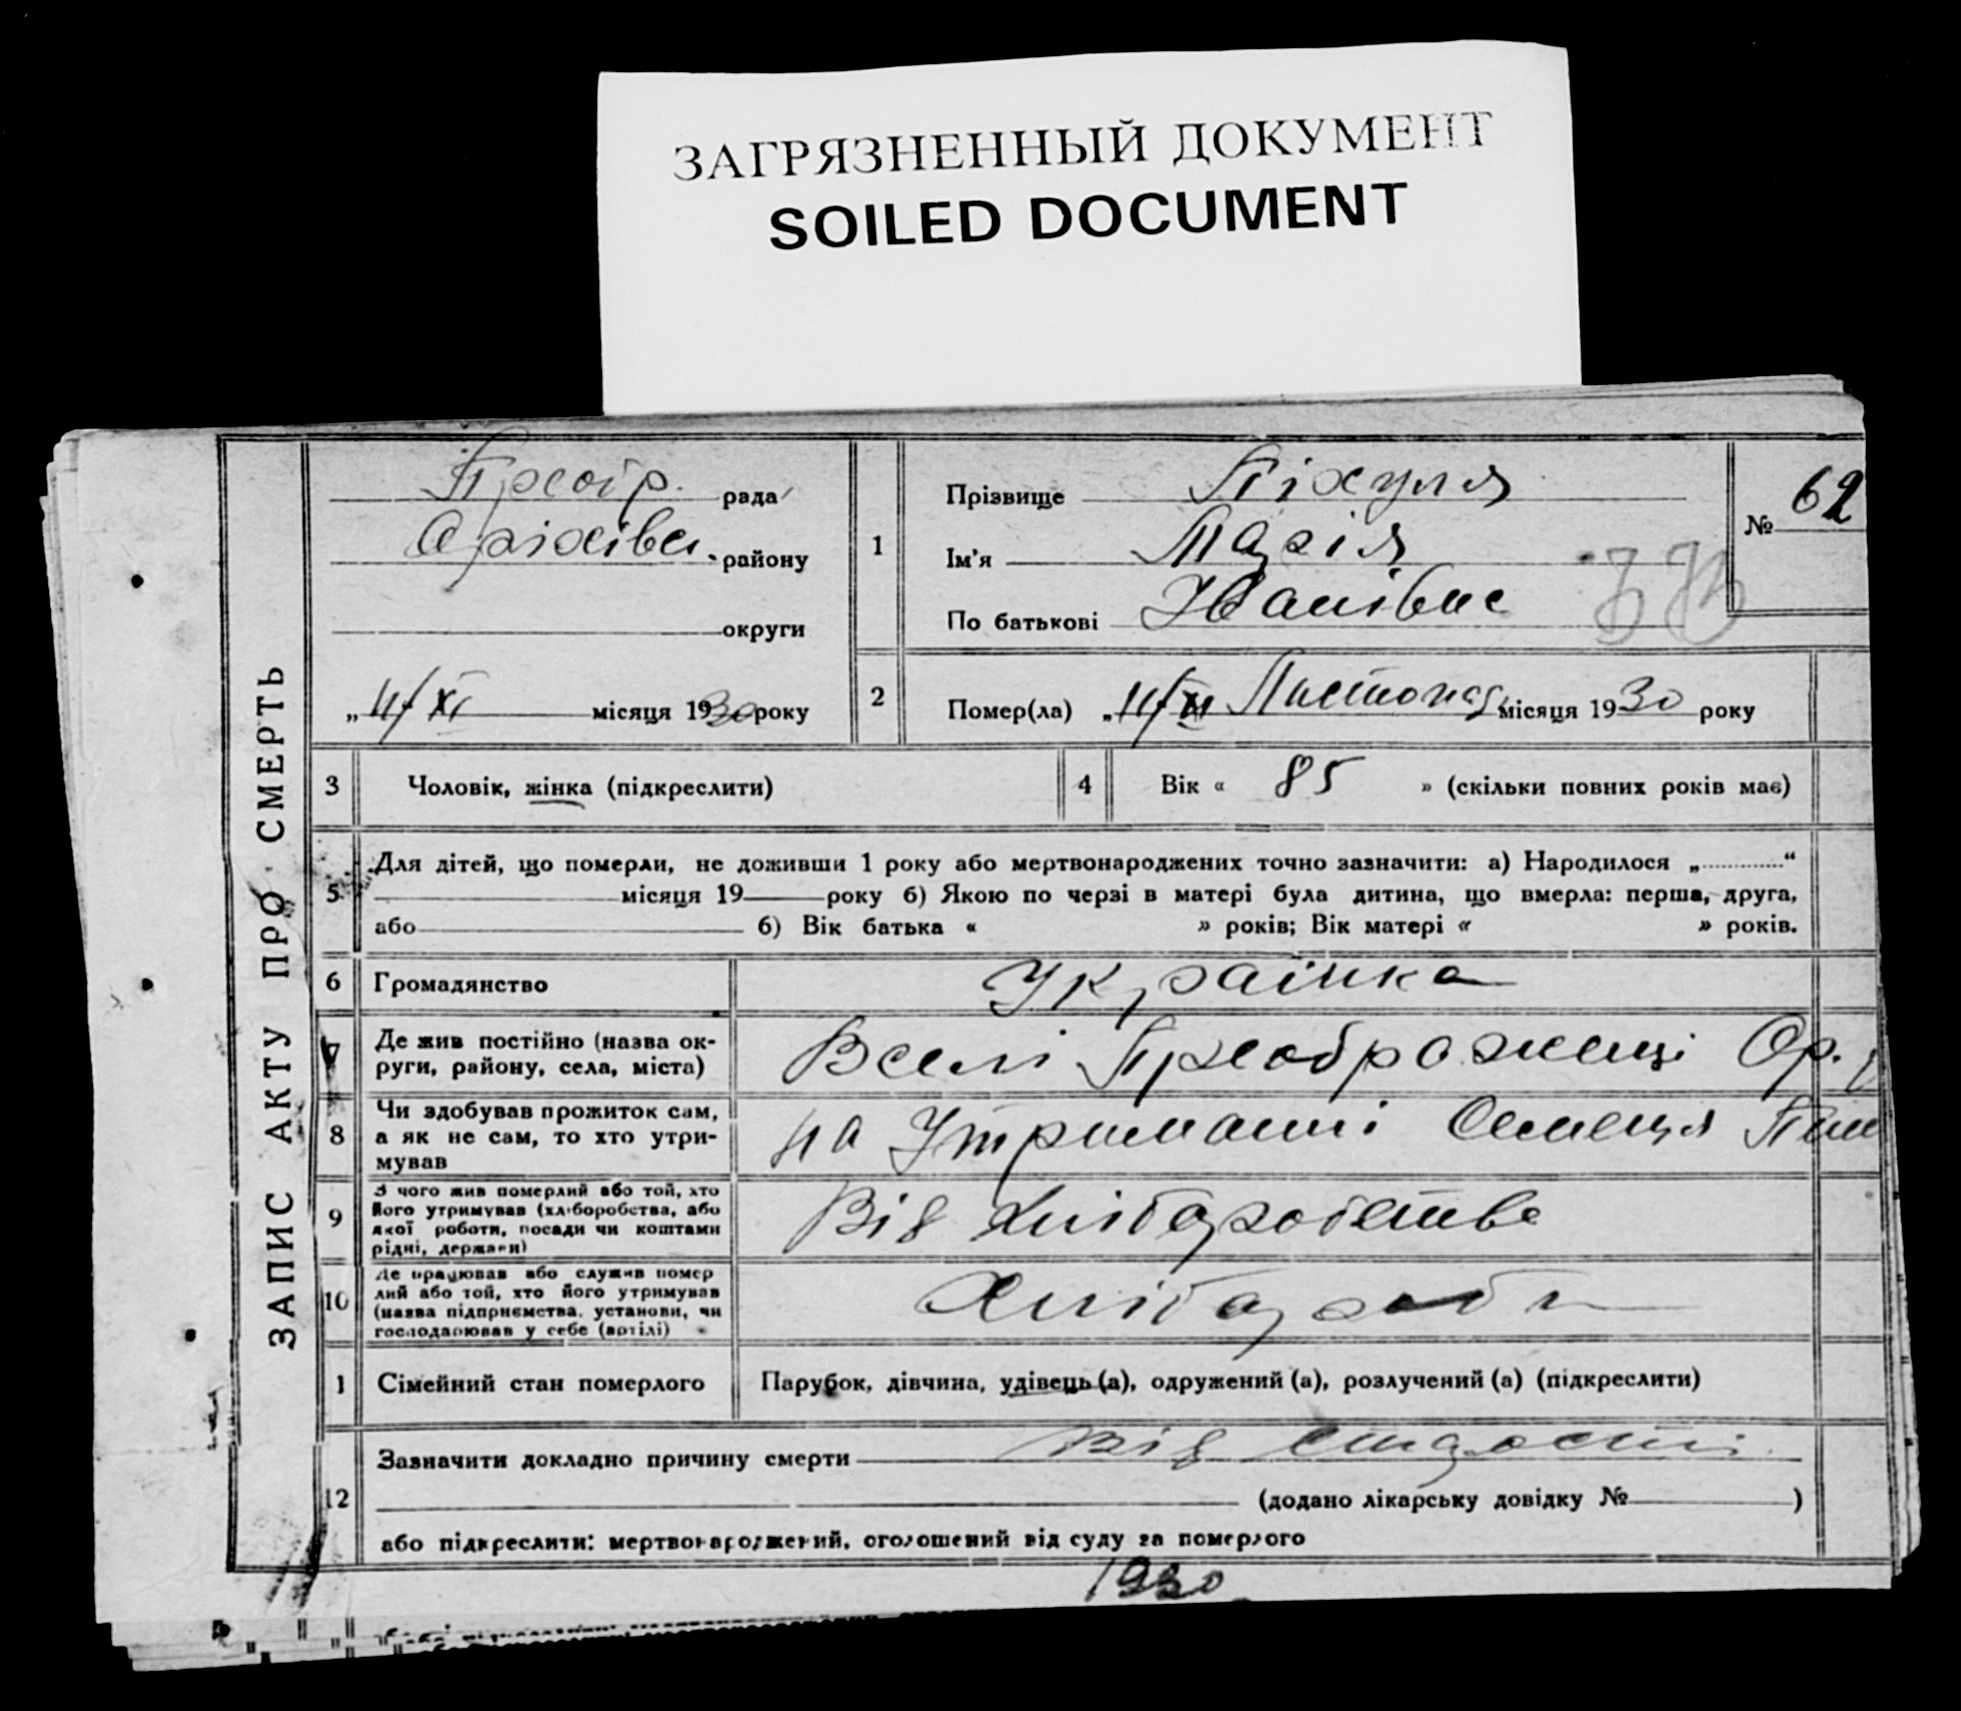 ЗАГРЯЗНЕННЫЙ ДОКУМЕНТ
SOILED DOCUMENT
ЗАПИС АКТУ ПРО СМЕРТЬ
Преобр. рада
Оріхівськ. району
округи
„ 11/XI місяця 1930 року
1
Прізвище Піхуля
Ім'я Марія
По батькові Іванівна
№ 62
2
Помер(ла) „ 11/XI Листопад місяця 1930 року
3 Чоловік, жінка (підкреслити)
4 Вік « 85 » (скільки повних років має)
5 Для дітей, що померли, не доживши 1 року або мертвонароджених точно зазначити: а) Народилося „ “
місяця 19 року б) Якою по черзі в матері була дитина, що вмерла: перша, друга,
або б) Вік батька « » років; Вік матері « » років.
6 Громадянство Українка
7 Де жив постійно (назва ок-
руги, району, села, міста) Вселі Преображенці Ор.
8 Чи здобував прожиток сам,
а як не сам, то хто утри-
мував на Утриманні
9 З чого жив померлий або той, хто
його утримував (хліборобства, або
якої роботи, посади чи коштами
рідні, держави) Від Хліборобства
10 Де працював або служив помер
лий або той, хто його утримував
(назва підприємства, установи, чи
господарював у себе (артілі) Хлібороби
1 Сімейний стан померлого Парубок, дівчина, удівець (а), одружений (а), розлучений (а) (підкреслити)
12 Зазначити докладно причину смерти від старости
(додано лікарську довідку № )
або підкреслити: мертвонароджений, оголошений від суду за померлого
1930